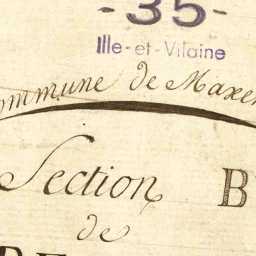 -35-
Ille-et-Vilaine
ommune de Maxen
Section B
de